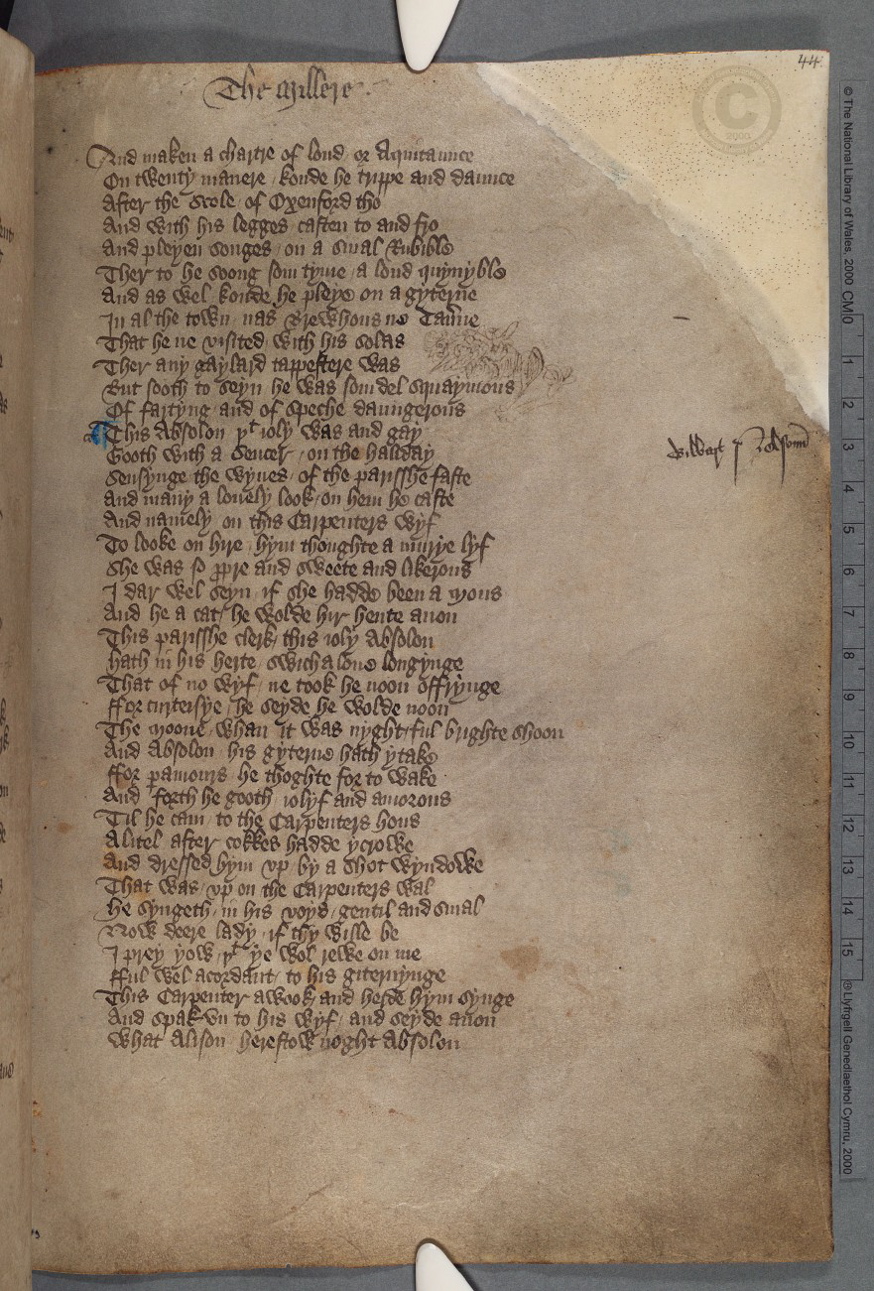 44
The Millere
And maken a chartre of lond / or Aquitaunce
On twenty manere / koude he trippe and daunce
After the Scole / of Oxenford tho
And with his legges / casten to and fro
And pleyen songes / on a smal Rubible
Ther to he soong som tyme / a loud quynyble
And as wel koude he pleye on a gyterne
In al the town / nas Brewhous ne Tauerne
That he ne visited / with his solas
Ther any gaylard tappestere was
But sooth to seyn he was somdel squaymous
Of fartyng / and of speche daungerous
This Absolon þt ioly was and gay
Gooth with a Sencer / on the haliday
Sensynge the wyues / of the parisshe faste
And many a louely look / on hem he caste
And namely / on this Carpenters wyf
To looke on hire / hym thoughte a murye lyf
She was so ppre and sweete and likerous
I dar wel seyn / if she hadde been a Mous
And he a cat / he wolde hir hente anon
This parisshe clerk / this ioly Absolon
Hath in his herte / swich a loue longynge
That of no wyf / ne took he noon offrynge
ffor curteisye / he seyde he wolde noon
The Moone / whan it was nyght / ful brighte shoon
And Absolon / his gyterne hath ytake
ffor pamours / he thoghte for to wake
And forth he gooth / iolyf and amorous
Til he cam / to the Carpenters hous
A litel after cokkes hadde ycrowe
And dressed hym vp / by a shot wyndowe
That was / vp on the Carpenters wal
He syngeth / in his voys / gentil and smal
Now deere lady / if thy wille be
I prey yow / þt ye wol rewe on me
fful wel acordant / to his giternynge
This Carpenter awook / and herde hym synge
And spak vn to his wyf / and seyde anon
What Alison herestow noght Absolon
© The National Library of Wales, 2000
CM 0 1 2 3 4 5 6 7 8 9 10 11 12 13 14 15
© Llyfrgell Genedlaethol Cymru, 2000